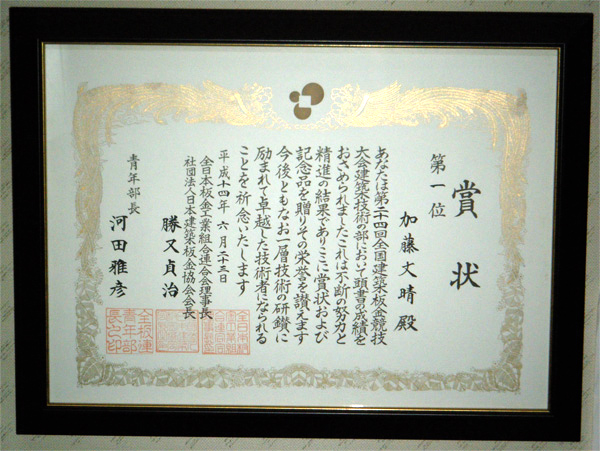 賞状
第一位
加藤文晴殿
あなたは第二十四回全国建築板金競技
大会建築大技術の部において頭書の成績を
おさめられましたこれは不断の努力と
精進の結果でありここに賞状および
記念品を贈りその栄誉を讃えます
今後ともなお一層技術の研鑽に
励まれて卓越した技術者になられる
ことを祈念いたします
平成十四年六月二十三日
全日本板金工業組合連合会理事長
社団法人日本建築板金協会会長
勝又貞治
青年部長
河田雅彦
全板連
青年部
長之印